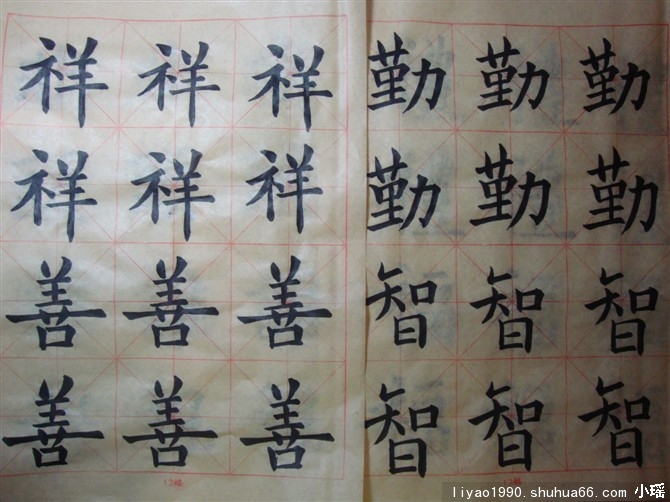 祥祥祥勤勤勤
祥祥祥勤勤勤
善善善智智智
善善善智智智
liyao1990.shuhua66.com 小瑶